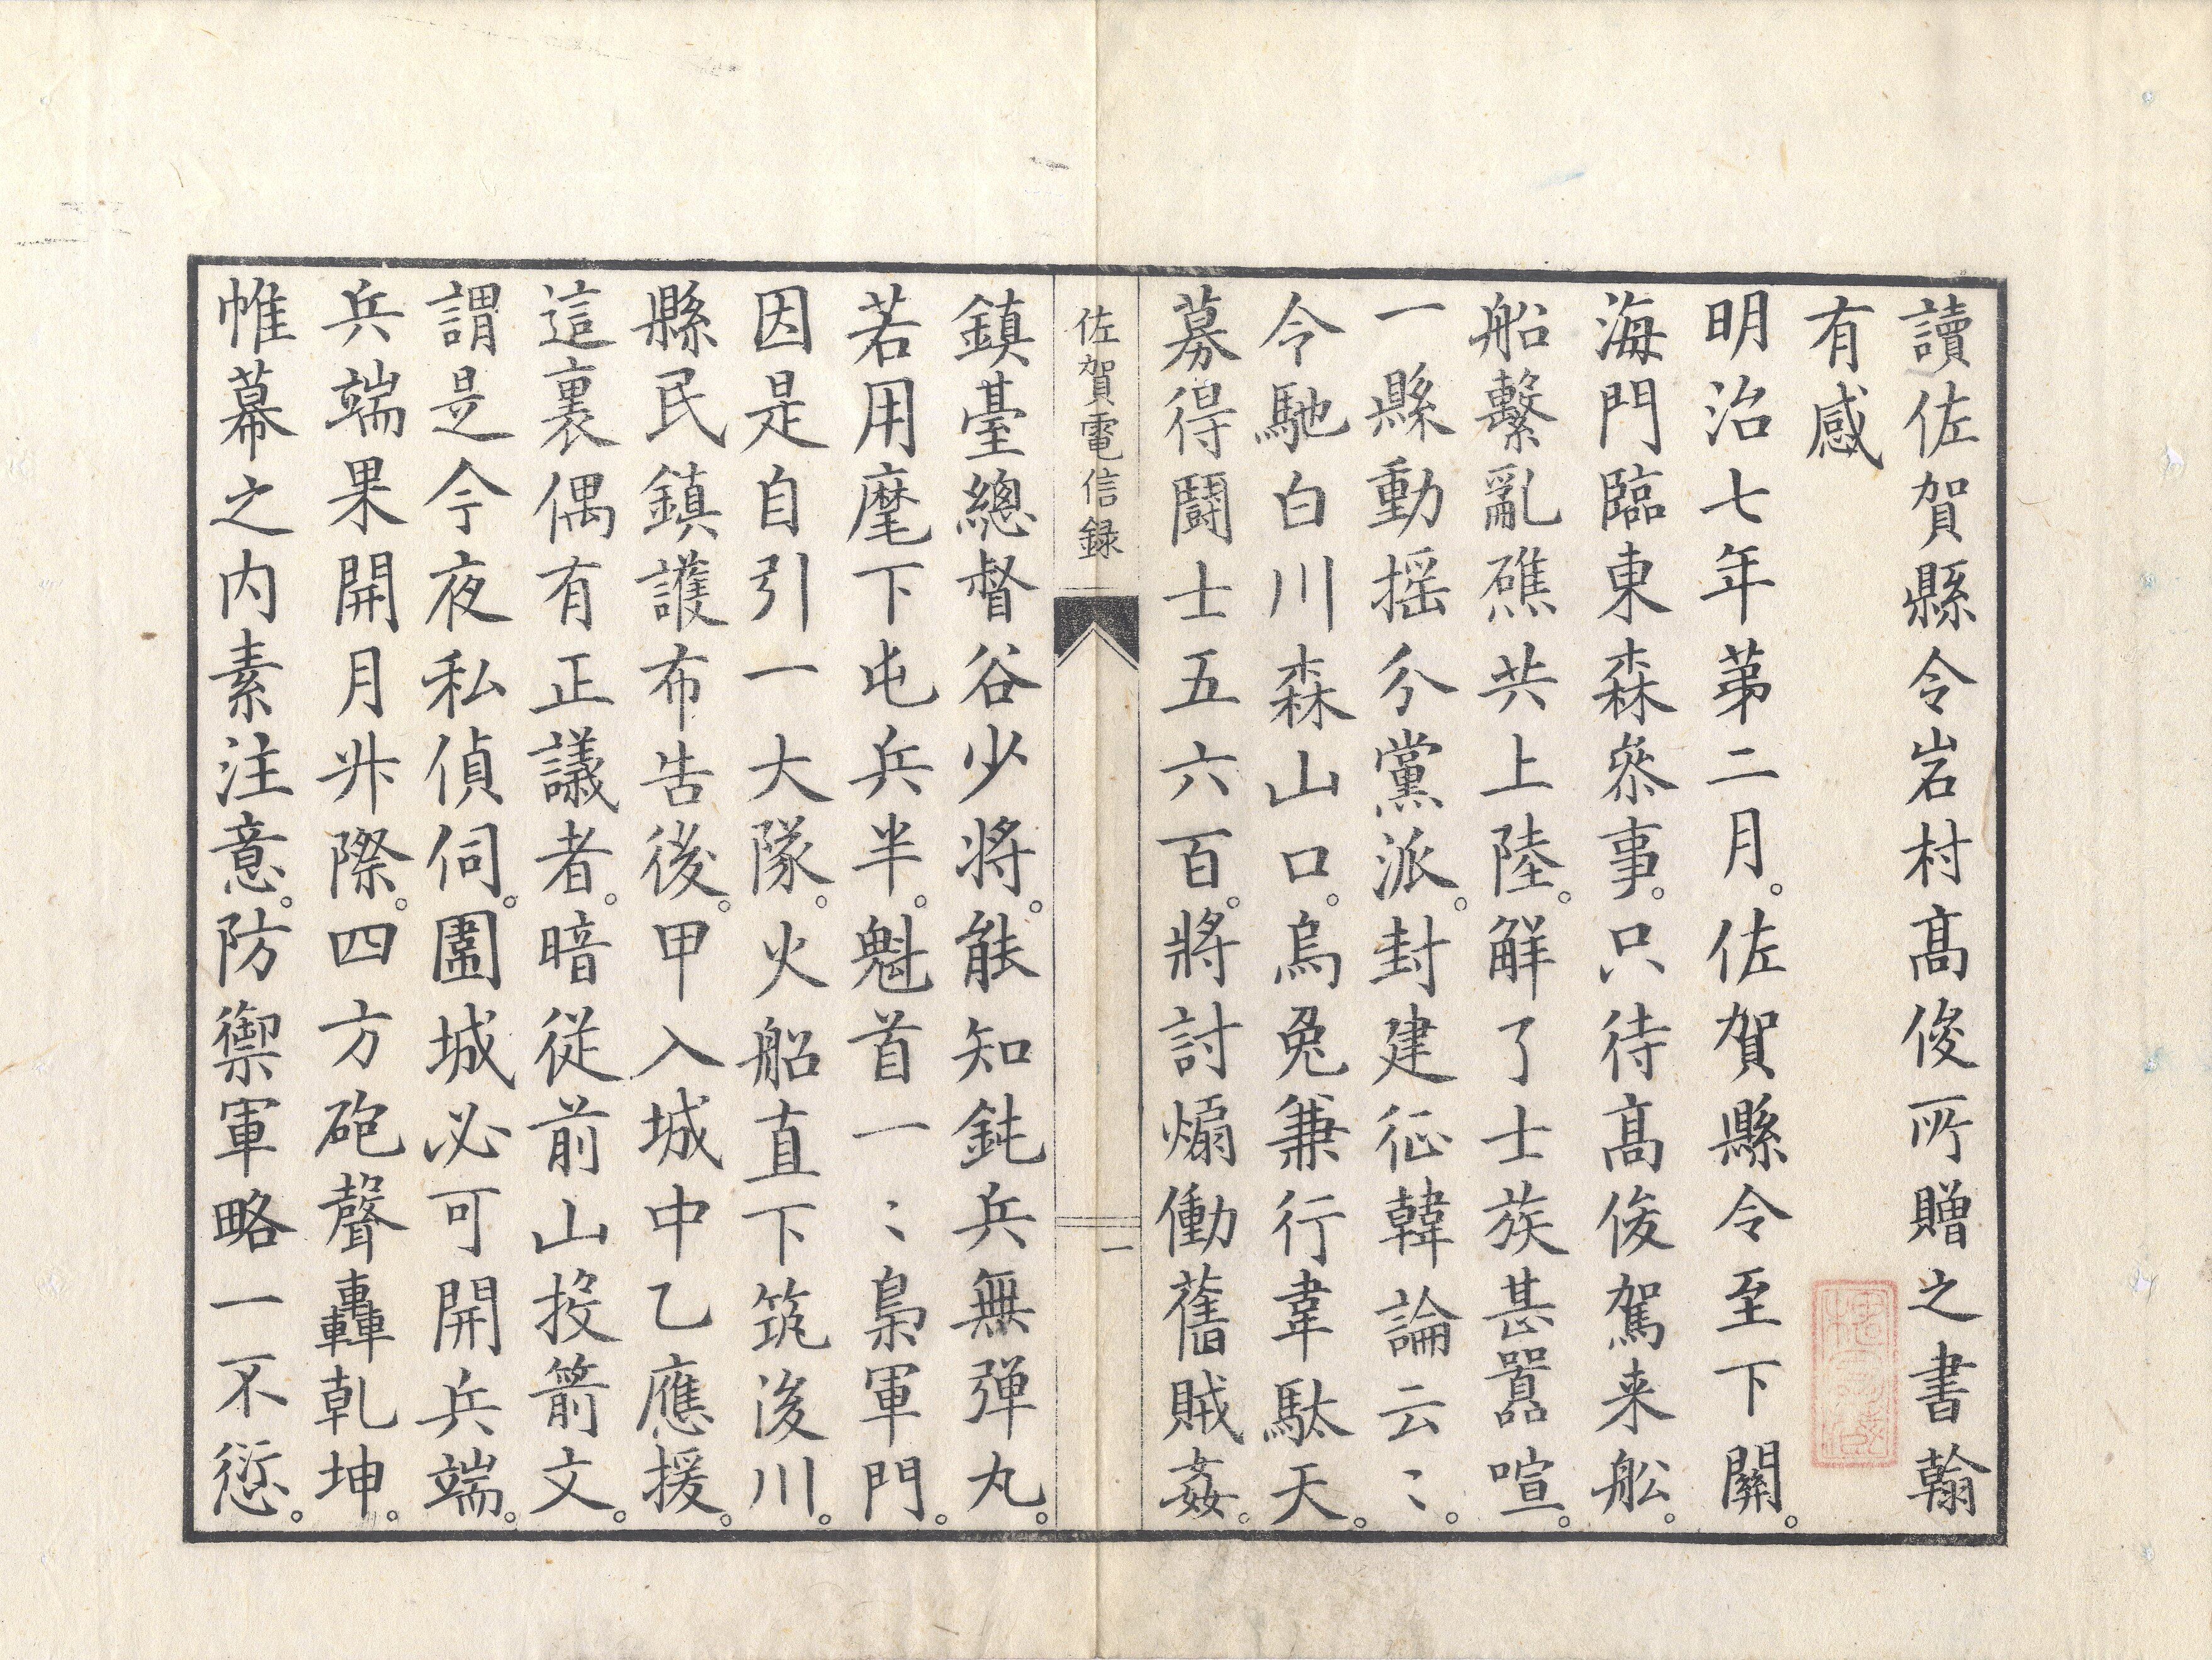 讀佐賀縣令岩村髙俊所贈之書翰
有感
明治七年苐二月。佐賀縣令至下關。
海門臨東森叅事。只待髙俊駕来舩。
船繫亂礁共上陸。觧了士族甚囂喧。
一縣動摇分黨派。封建征韓論云〻。
令馳白川森山口。烏兔兼行韋駄天。
募得鬪士五六百。將討煽働舊賊姦。
佐賀電信録
一
鎮臺總督谷少将。能知鈍兵無弾丸。
若用麾下屯兵半。魁首一〻梟軍門。
因是自引一大隊。火船直下筑後川。
縣民鎮護布告後。甲入城中乙應援。
這裏偶有正議者。暗従前山投箭文。
謂是今夜私偵伺。圍城必可開兵端。
兵端果開月升際。四方砲聲轟乹坤。
帷幕之内素注意。防禦軍略一不愆。